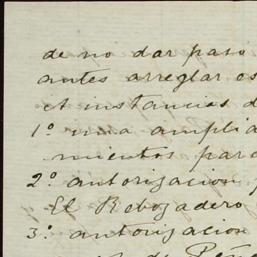 de no dar paso
antes arreglar es
et instancias d
1º una amplia
mientos para
2º autorizacion
El Rebozadero
3º autorizacion
de Peña